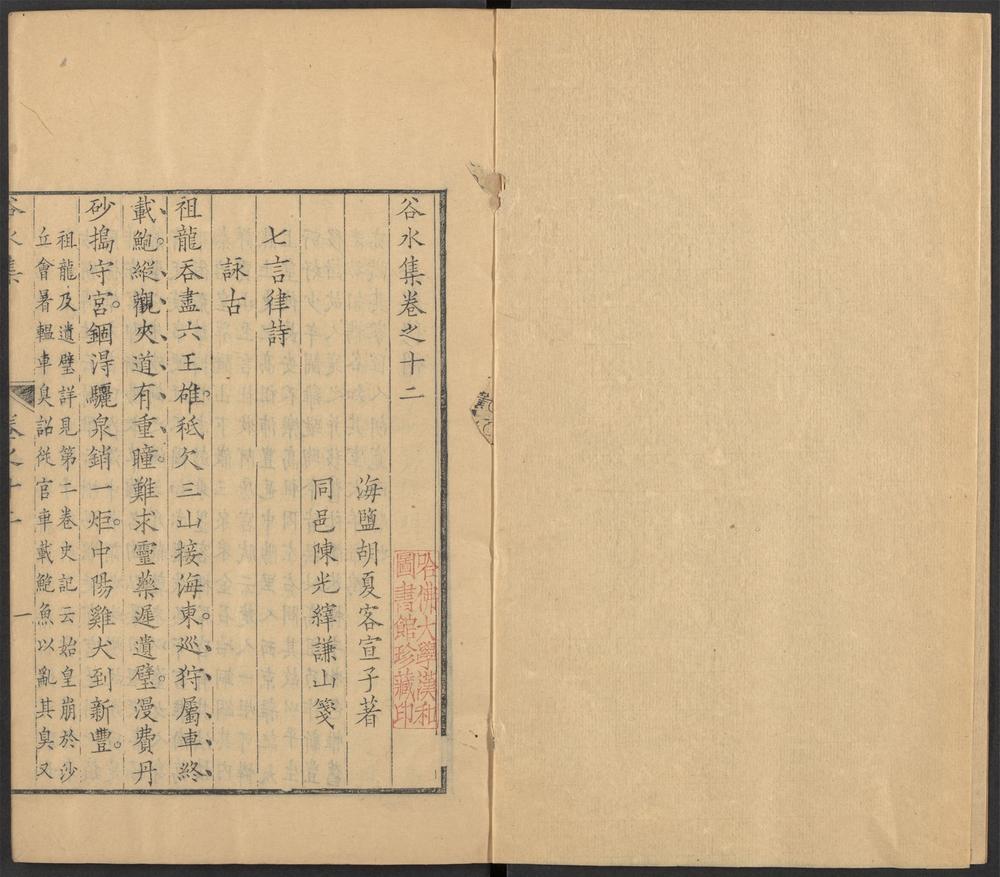 谷水集卷之十二
海鹽胡夏客宣子著
同邑陳光繹謙山箋
七言律詩
詠古
祖龍吞盡六王雄。秪欠三山接海東。廵狩屬車終
載鮑。縱觀夾道有重瞳。難求靈藥遲遺璧。漫費丹
砂搗守宮。錮淂驪泉銷一炬。中陽雞犬到新豐。
祖龍及遺璧詳見第二卷史記云始皇崩於沙
丘會暑轀車臭詔從官車載鮑魚以亂其臭又
谷水集
卷之十二
一
哈佛大學漢和
圖書館珍藏印